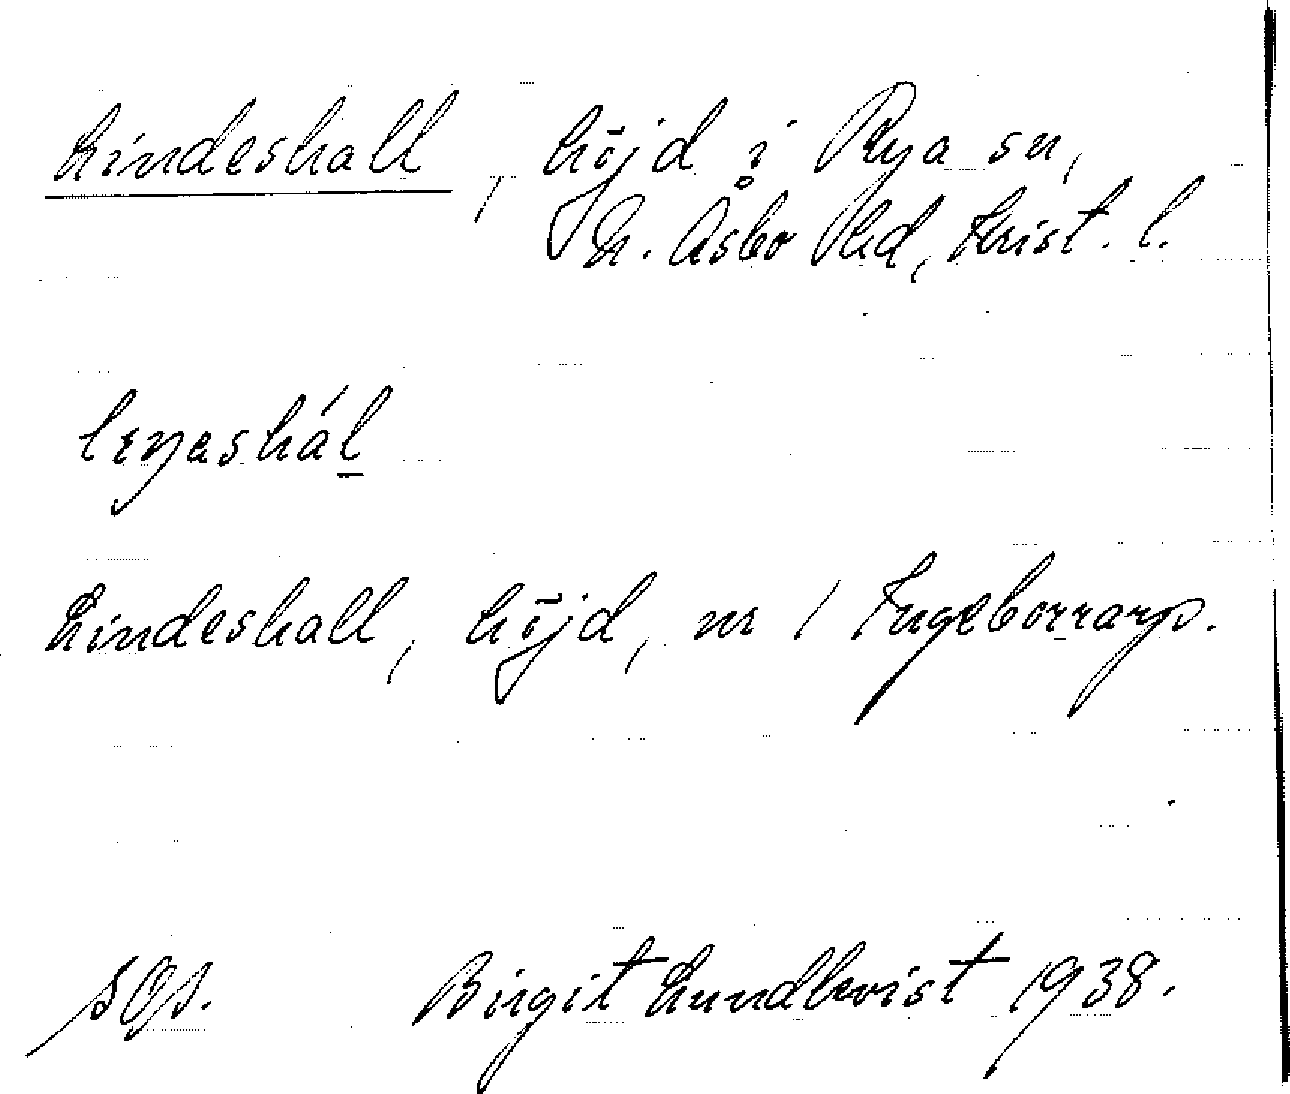 Lindeshall, höjd i Rya sn,
N. Åsbo hd, Krist. l.
Lindeshall, höjd, nr 1 Ingeborrarp.
sgs. Birgit Lundkvist 1938.